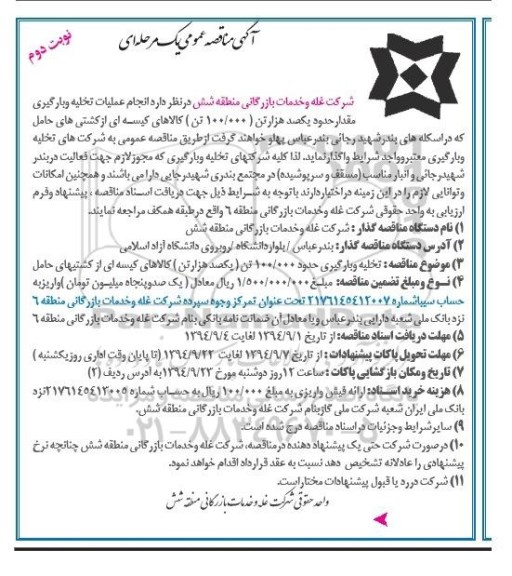 آگهی مناقصه عمومی یک مرحله‌ای
نوبت دوم
شرکت غله وخدمات بازرگانی منطقه شش درنظر دارد انجام عملیات تخلیه وبارگیری
مقدارحدود یکصد هزارتن ( ۱۰۰/۰۰۰ تن ) کالاهای کیسه ای ازکشتی های حامل
که دراسکله های بندرشهید رجائی بندرعباس پهلو خواهند گرفت ازطریق مناقصه عمومی به شرکت های تخلیه
وبارگیری معتبروواجد شرایط واگذارنماید. لذا کلیه شرکتهای تخلیه وبارگیری که مجوزلازم جهت فعالیت دربندر
شهیدرجائی و انبار مناسب (مسقف و سرپوشیده) در مجتمع بندری شهیدرجایی دارا می باشند و همچنین امکانات
وتوانایی لازم را در این زمینه دراختیاردارند باتوجه به شرایط ذیل جهت دریافت اسناد مناقصه ، پیشنهاد وفرم
ارزیابی به واحد حقوقی شرکت غله وخدمات بازرگانی منطقه ۶ واقع درطبقه همکف مراجعه نمایند.
۱) نام دستگاه مناقصه گذار : شرکت غله وخدمات بازرگانی منطقه شش
۲) آدرس دستگاه مناقصه گذار: بندرعباس / بلواردانشگاه / روبروی دانشگاه آزاد اسلامی
۳) موضوع مناقصه : تخلیه وبارگیری حدود ۱۰۰/۰۰۰ تن ( یکصد هزارتن ) کالاهای کیسه ای از کشتیهای حامل
۴) نوع ومبلغ تضمین مناقصه: مبلغ ۱/۵۰۰/۰۰۰/۰۰۰ ریال معادل ( یک صدوپنجاه میلیون تومان )واریزبه
حساب سیباشماره ۲۱۷۶۱۴۵۴۱۲۰۰۷ تحت عنوان تمرکز وجوه سپرده شرکت غله وخدمات بازرگانی منطقه ۶
نزد بانک ملی شعبه دارایی بندرعباس ویا معادل آن ضمانت نامه بانکی بنام شرکت غله وخدمات بازرگانی منطقه ۶
۵) مهلت دریافت اسناد مناقصه: از تاریخ ۱۳۹۴/۹/۱ لغایت ۱۳۹۴/۹/۴
۶) مهلت تحویل پاکات پیشنهادات : از تاریخ ۱۳۹۴/۹/۷ لغایت ۱۳۹۴/۹/۲۲ (تا پایان وقت اداری روزیکشنبه )
۷) تاریخ ومکان بازگشایی پاکات : ساعت ۱۲ روز دوشنبه مورخ ۱۳۹۴/۹/۲۳ به آدرس ردیف (۲)
۸) هزینه خرید اسناد: ارائه فیش واریزی به مبلغ ۱۰۰/۰۰۰ ریال به حساب شماره ۲۱۷۶۱۴۵۴۱۲۰۰۵ نزد
بانک ملی ایران شعبه شرکت ملی گازبنام شرکت غله وخدمات بازرگانی منطقه شش.
۹) سایرشرایط وجزئیات دراسناد مناقصه درج شده است.
۱۰) درصورت شرکت حتی یک پیشنهاد دهنده درمناقصه، شرکت غله وخدمات بازرگانی منطقه شش چنانچه نرخ
پیشنهادی را عادلانه تشخیص دهد نسبت به عقد قرارداد اقدام خواهد نمود.
۱۱) شرکت دررد یا قبول پیشنهادات مختاراست.
واحد حقوقی شرکت غله و خدمات بازرگانی منطقه شش